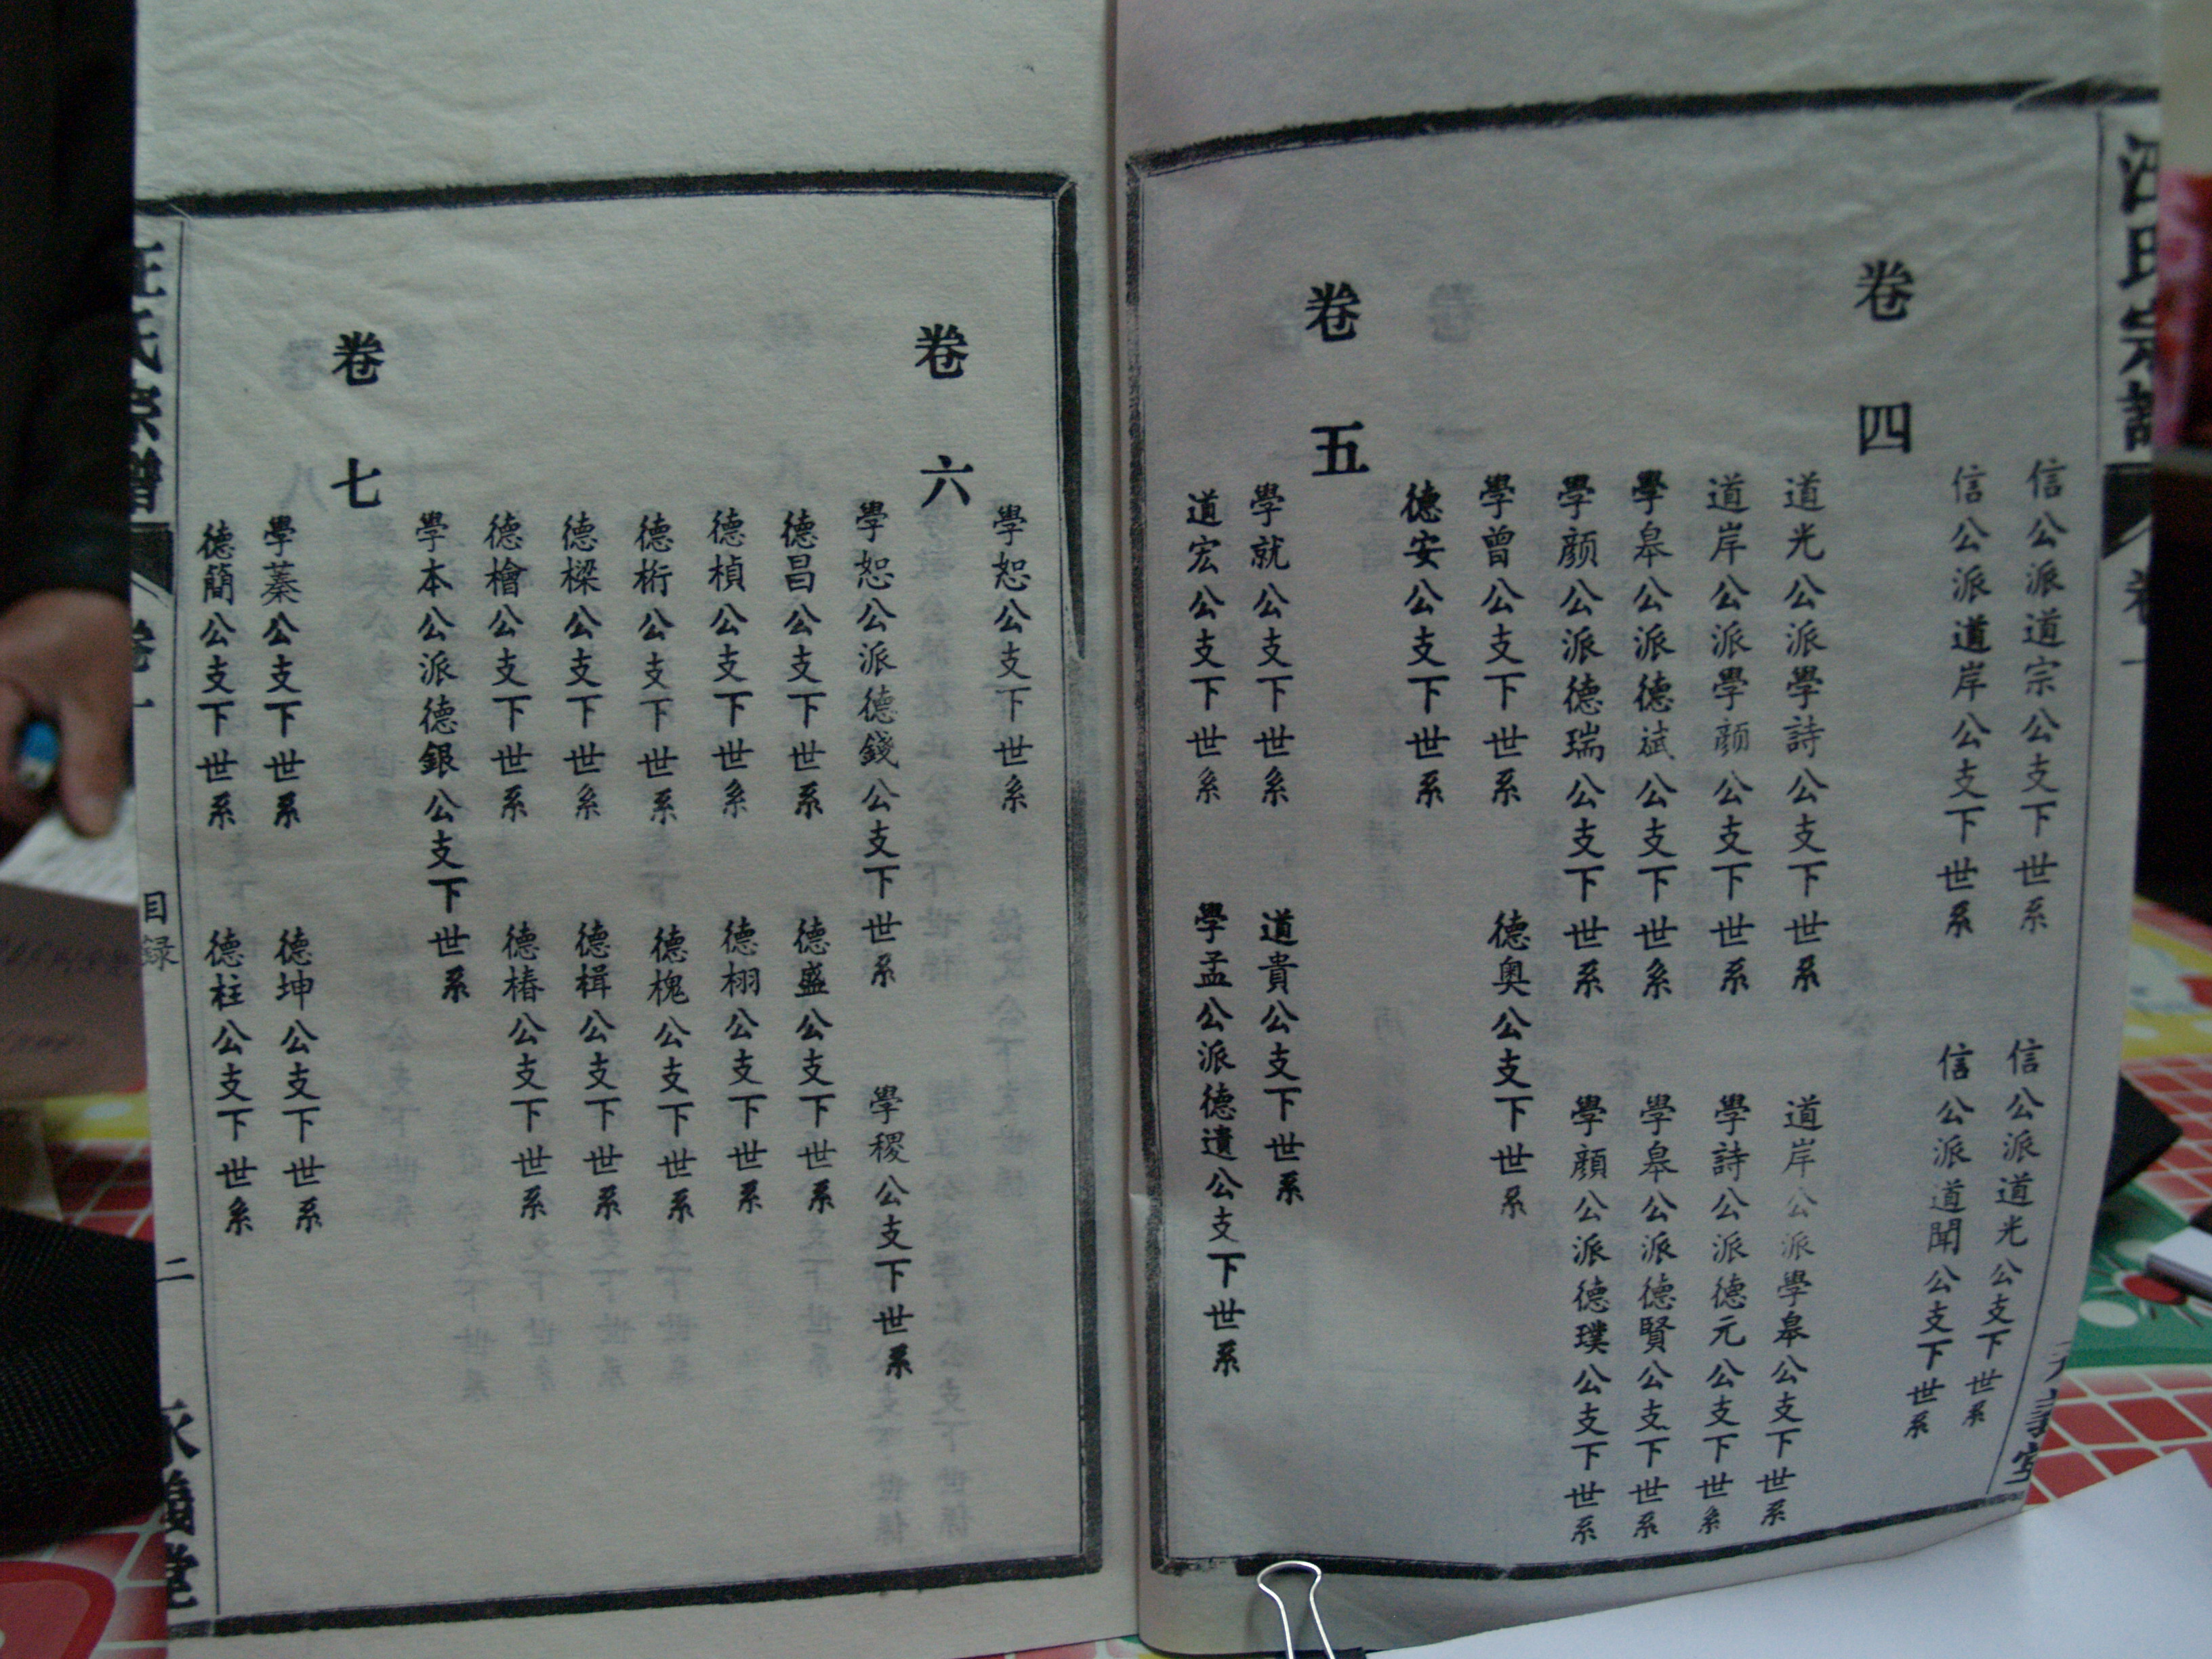 汪氏宗譜
卷一
信公派道宗公支下世系
信公派道光公支下世系
信公派道岸公支下世系
信公派道聞公支下世系
卷四
道光公派學詩公支下世系
道岸公派學皋公支下世系
道岸公派學顔公支下世系
學詩公派德元公支下世系
學皋公派德斌公支下世系
學皋公派德賢公支下世系
學顔公派德瑞公支下世系
學顔公派德璞公支下世系
學曾公支下世系
德奥公支下世系
德安公支下世系
卷五
學就公支下世系
道貴公支下世系
道宏公支下世系
學孟公派德遺公支下世系
學恕公支下世系
卷六
學恕公派德錢公支下世系
學稷公支下世系
德昌公支下世系
德盛公支下世系
德楨公支下世系
德栩公支下世系
德桁公支下世系
德槐公支下世系
德樑公支下世系
德楫公支下世系
德檜公支下世系
德椿公支下世系
學本公派德銀公支下世系
卷七
學蓁公支下世系
德坤公支下世系
德簡公支下世系
德柱公支下世系
汪氏宗譜
卷一
目録
二
永義堂